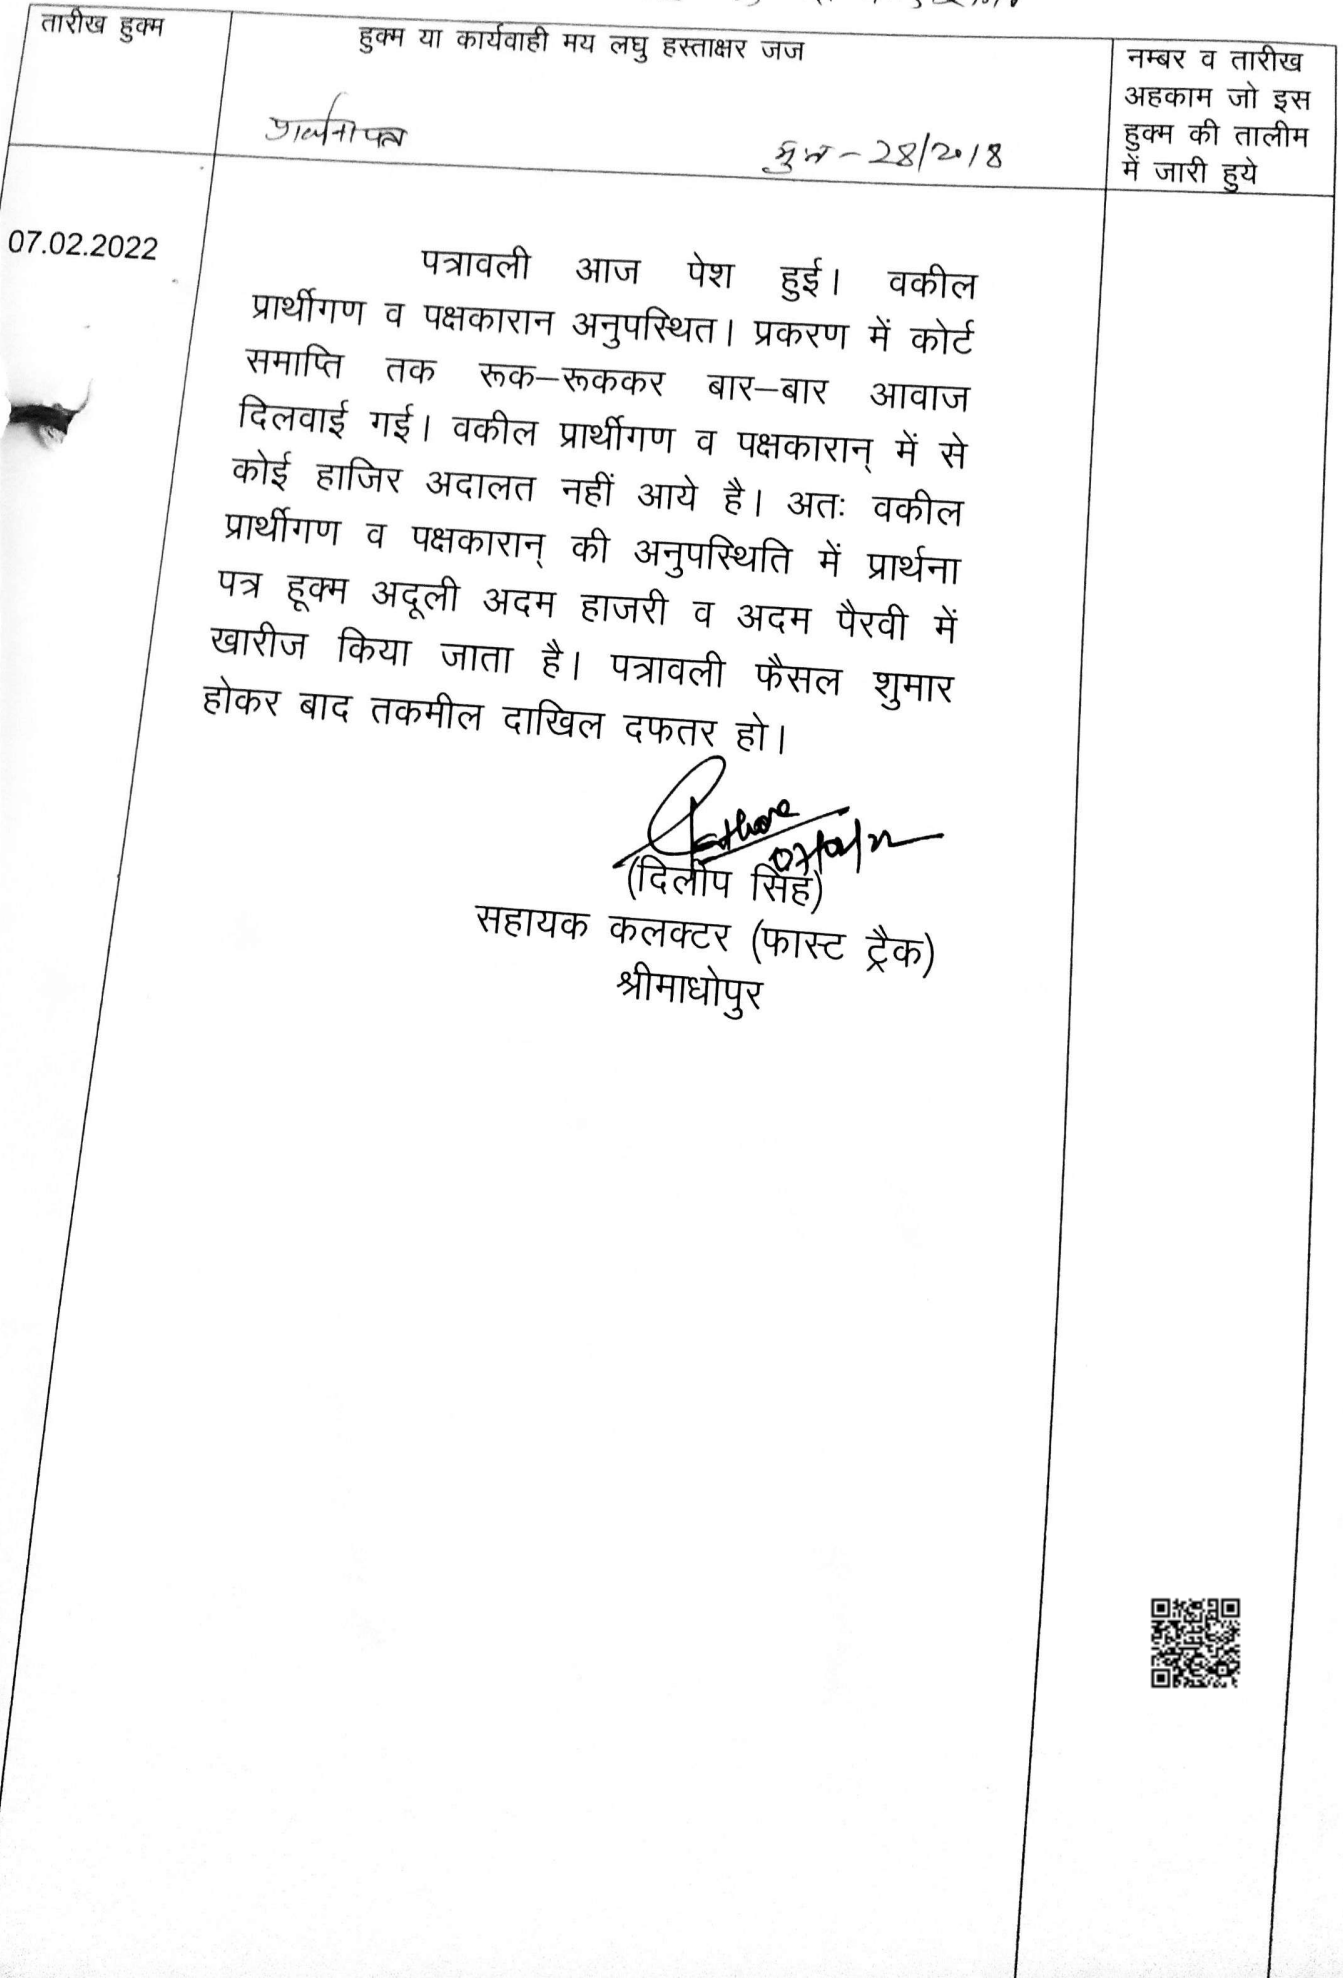 तारीख हुक्म
हुक्म या कार्यवाही मय लघु हस्ताक्षर जज
नम्बर व तारीख
अहकाम जो इस
हुक्म की तालीम
में जारी हुये
प्रार्थना पत्र
28/2018
07.02.2022
पत्रावली आज पेश हुई। वकील
प्रार्थीगण व पक्षकारान अनुपस्थित। प्रकरण में कोर्ट
समाप्ति तक रूक–रूककर बार–बार आवाज
दिलवाई गई। वकील प्रार्थीगण व पक्षकारान् में से
कोई हाजिर अदालत नहीं आये है। अतः वकील
प्रार्थीगण व पक्षकारान् की अनुपस्थिति में प्रार्थना
पत्र हूक्म अदूली अदम हाजरी व अदम पैरवी में
खारीज किया जाता है। पत्रावली फैसल शुमार
होकर बाद तकमील दाखिल दफतर हो।
(दिलीप सिंह)
सहायक कलक्टर (फास्ट ट्रैक)
श्रीमाधोपुर